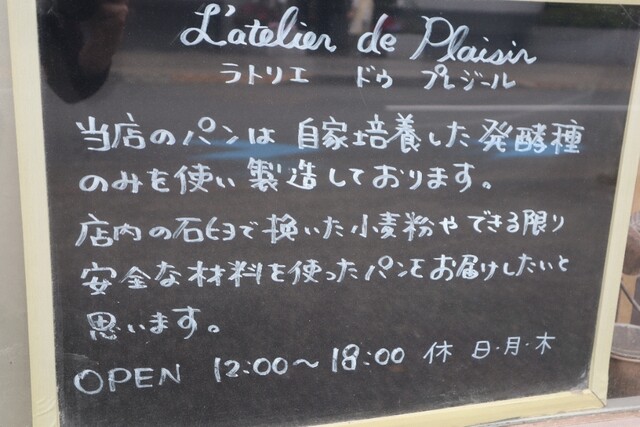 L'atelier de Plaisir
ラトリエ ドゥ プレジール
当店のパンは 自家培養した発酵種
のみを使い製造しております。
店内の石臼で挽いた小麦粉やできる限り
安全な材料を使ったパンをお届けしたいと
思います。
OPEN 12:00〜18:00 休 日・月・木